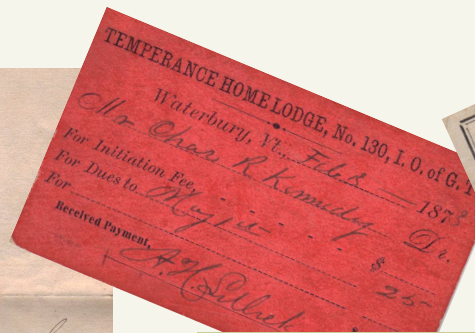 TEMPERANCE HOME LODGE, No. 130, I. O. of G.
Waterbury, Vt., Feb 187
Mr Chas R Kennedy Dr.
For Initiation Fee, $
For Dues to May 1st 25-
For
Received Payment,